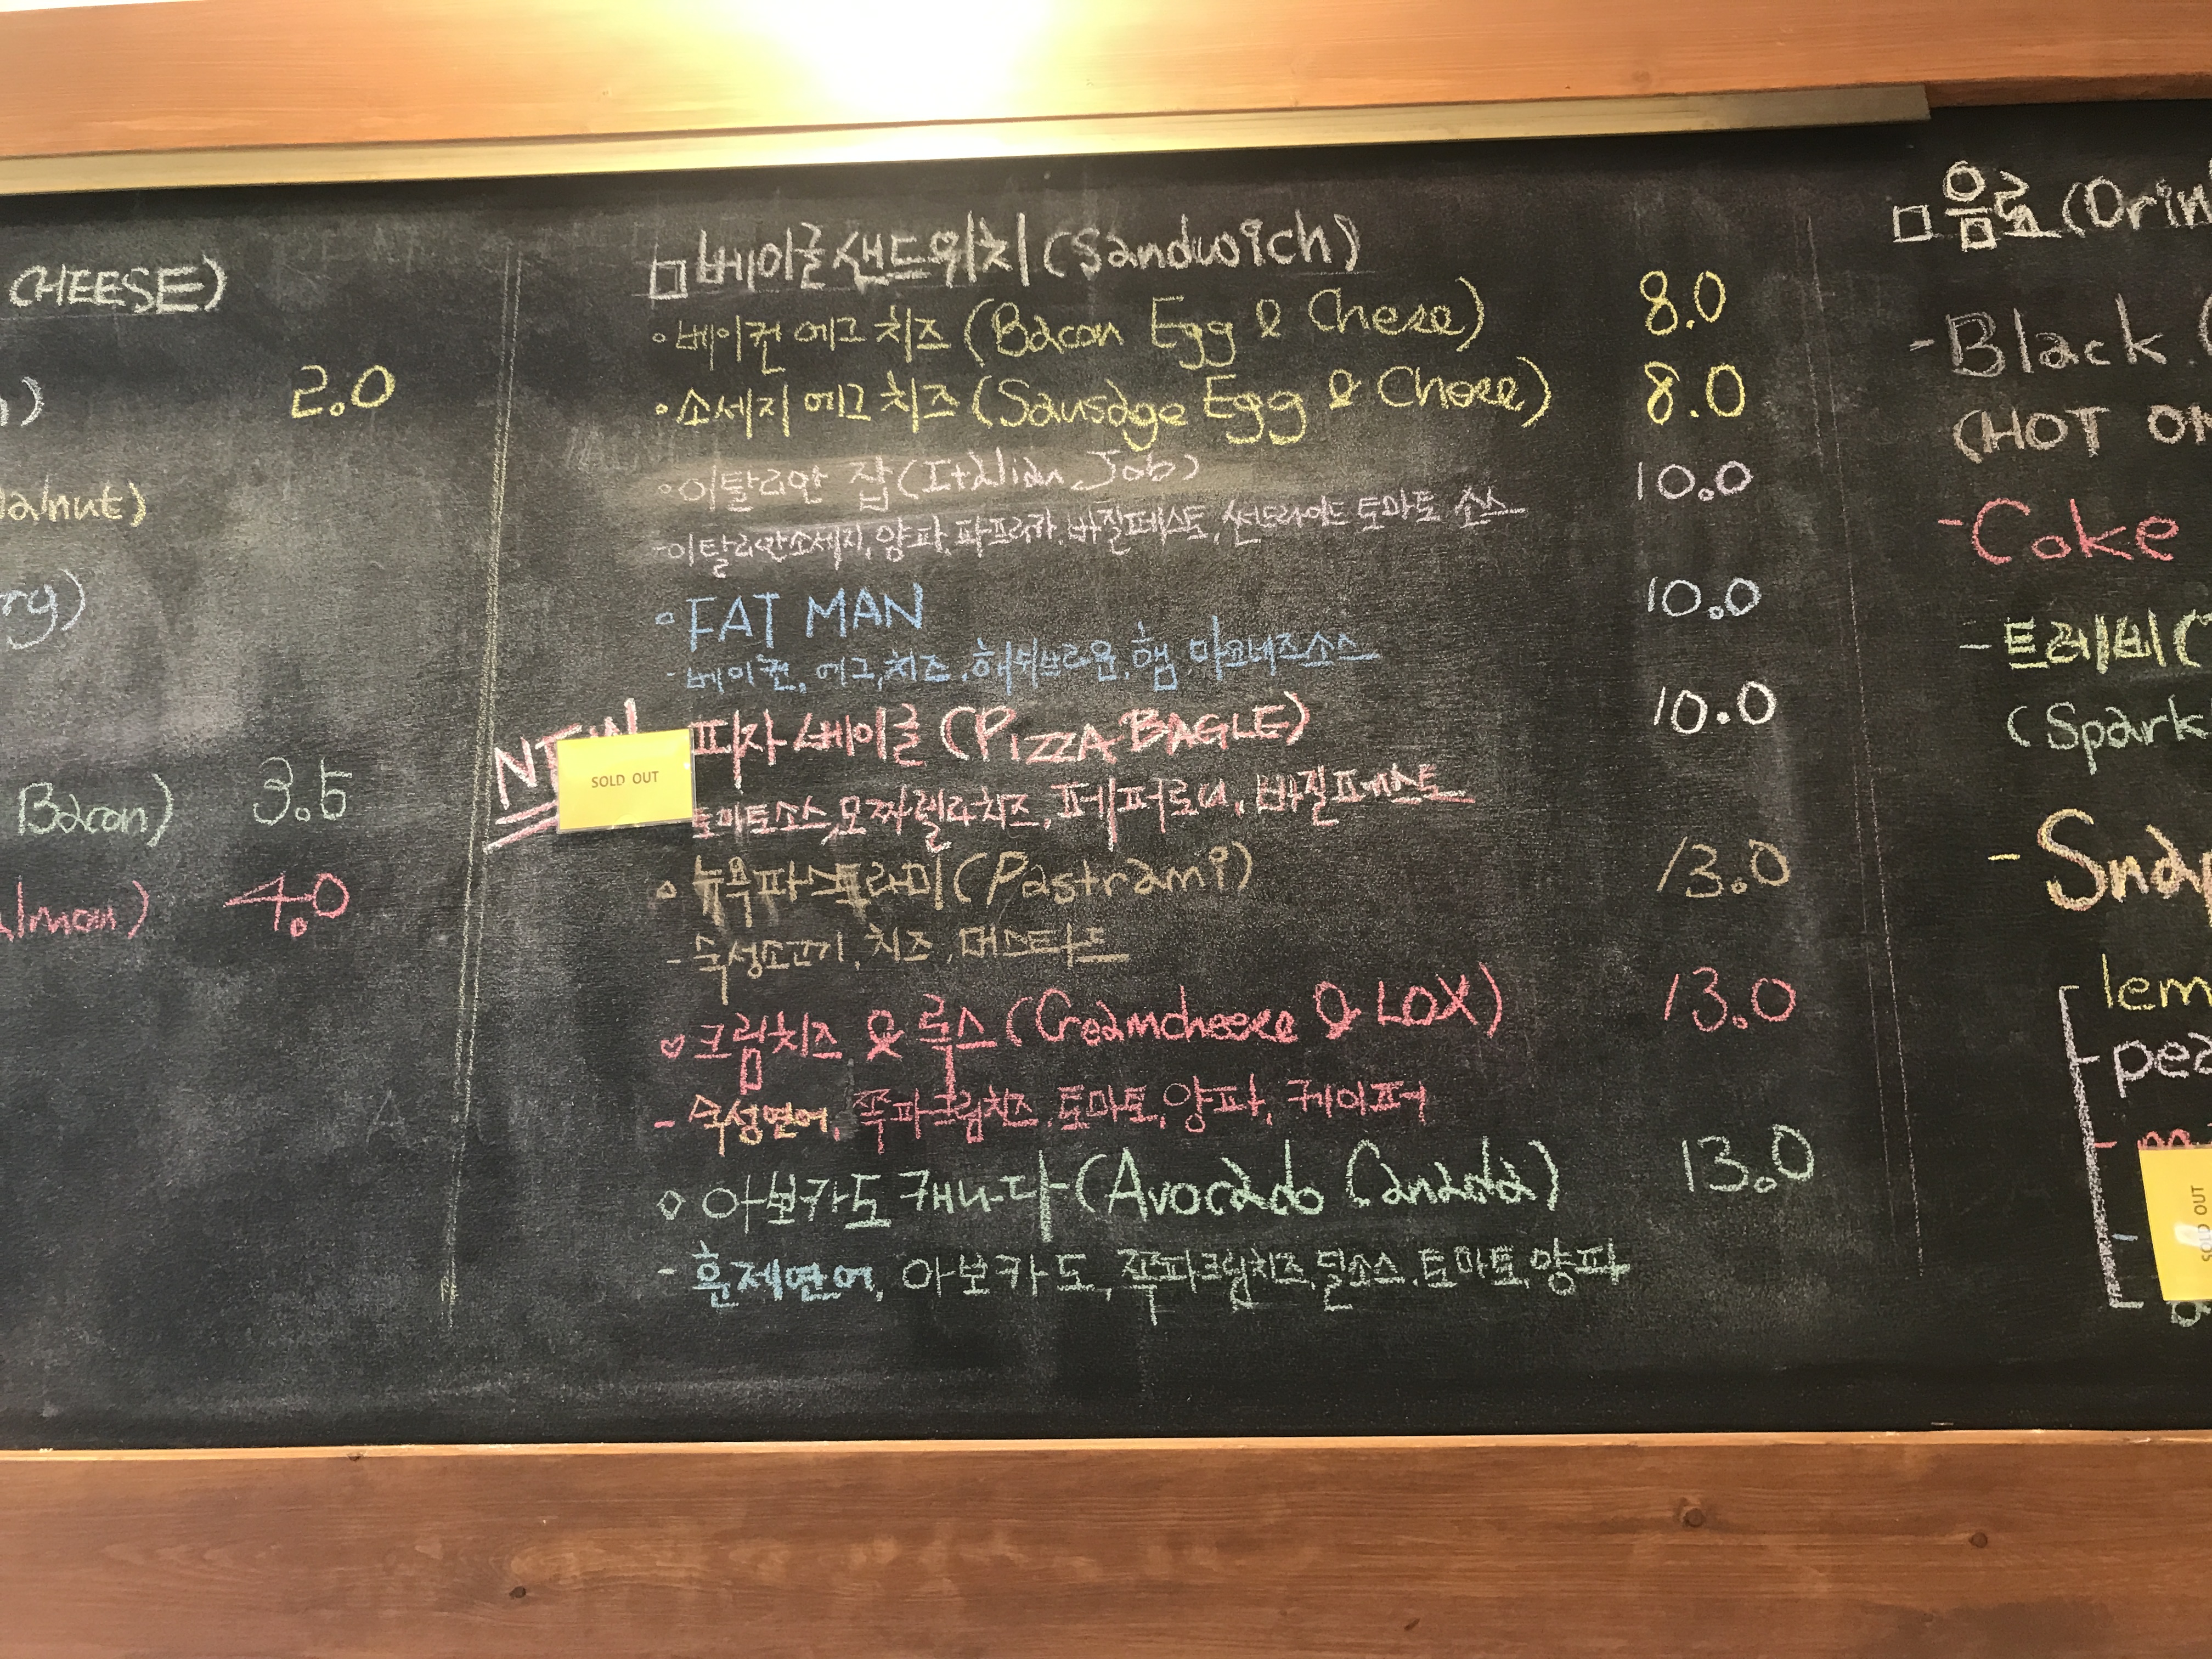 CHEESE)
2.0
Bacon) 3.5
4.0
베이글샌드위치 (Sandwich)
베이컨 에그 치즈 (Bacon Egg & Cheese) 8.0
소세지 에그 치즈 (Sausage Egg & Cheese) 8.0
이탈리안 잡 (Italian Job) 10.0
-이탈리안소세지, 양파, 파프리카, 바질페스토, 썬드라이드 토마토 소스
FAT MAN 10.0
- 베이컨, 에그, 치즈, 해쉬브라운, 햄, 마요네즈소스
NEW 피자 베이글 (PIZZA BAGLE) 10.0
SOLD OUT
토마토소스, 모짜렐라치즈, 페퍼로니, 바질페스토
뉴욕파스트라미 (Pastrami) 13.0
- 숙성소고기, 치즈, 머스타드
크림치즈 & 룩스 (Creamcheese & LOX) 13.0
- 숙성연어, 쪽파크림치즈, 토마토, 양파, 케이퍼
아보카도 캐나다 (Avocado Canada) 13.0
- 훈제연어, 아보카도, 쪽파크림치즈, 딜소스, 토마토, 양파
음료 (Drin
- Black (
(HOT ON
- Coke
- 트레비 (
(Spark
- Snap
lem
pea
SOLD OUT